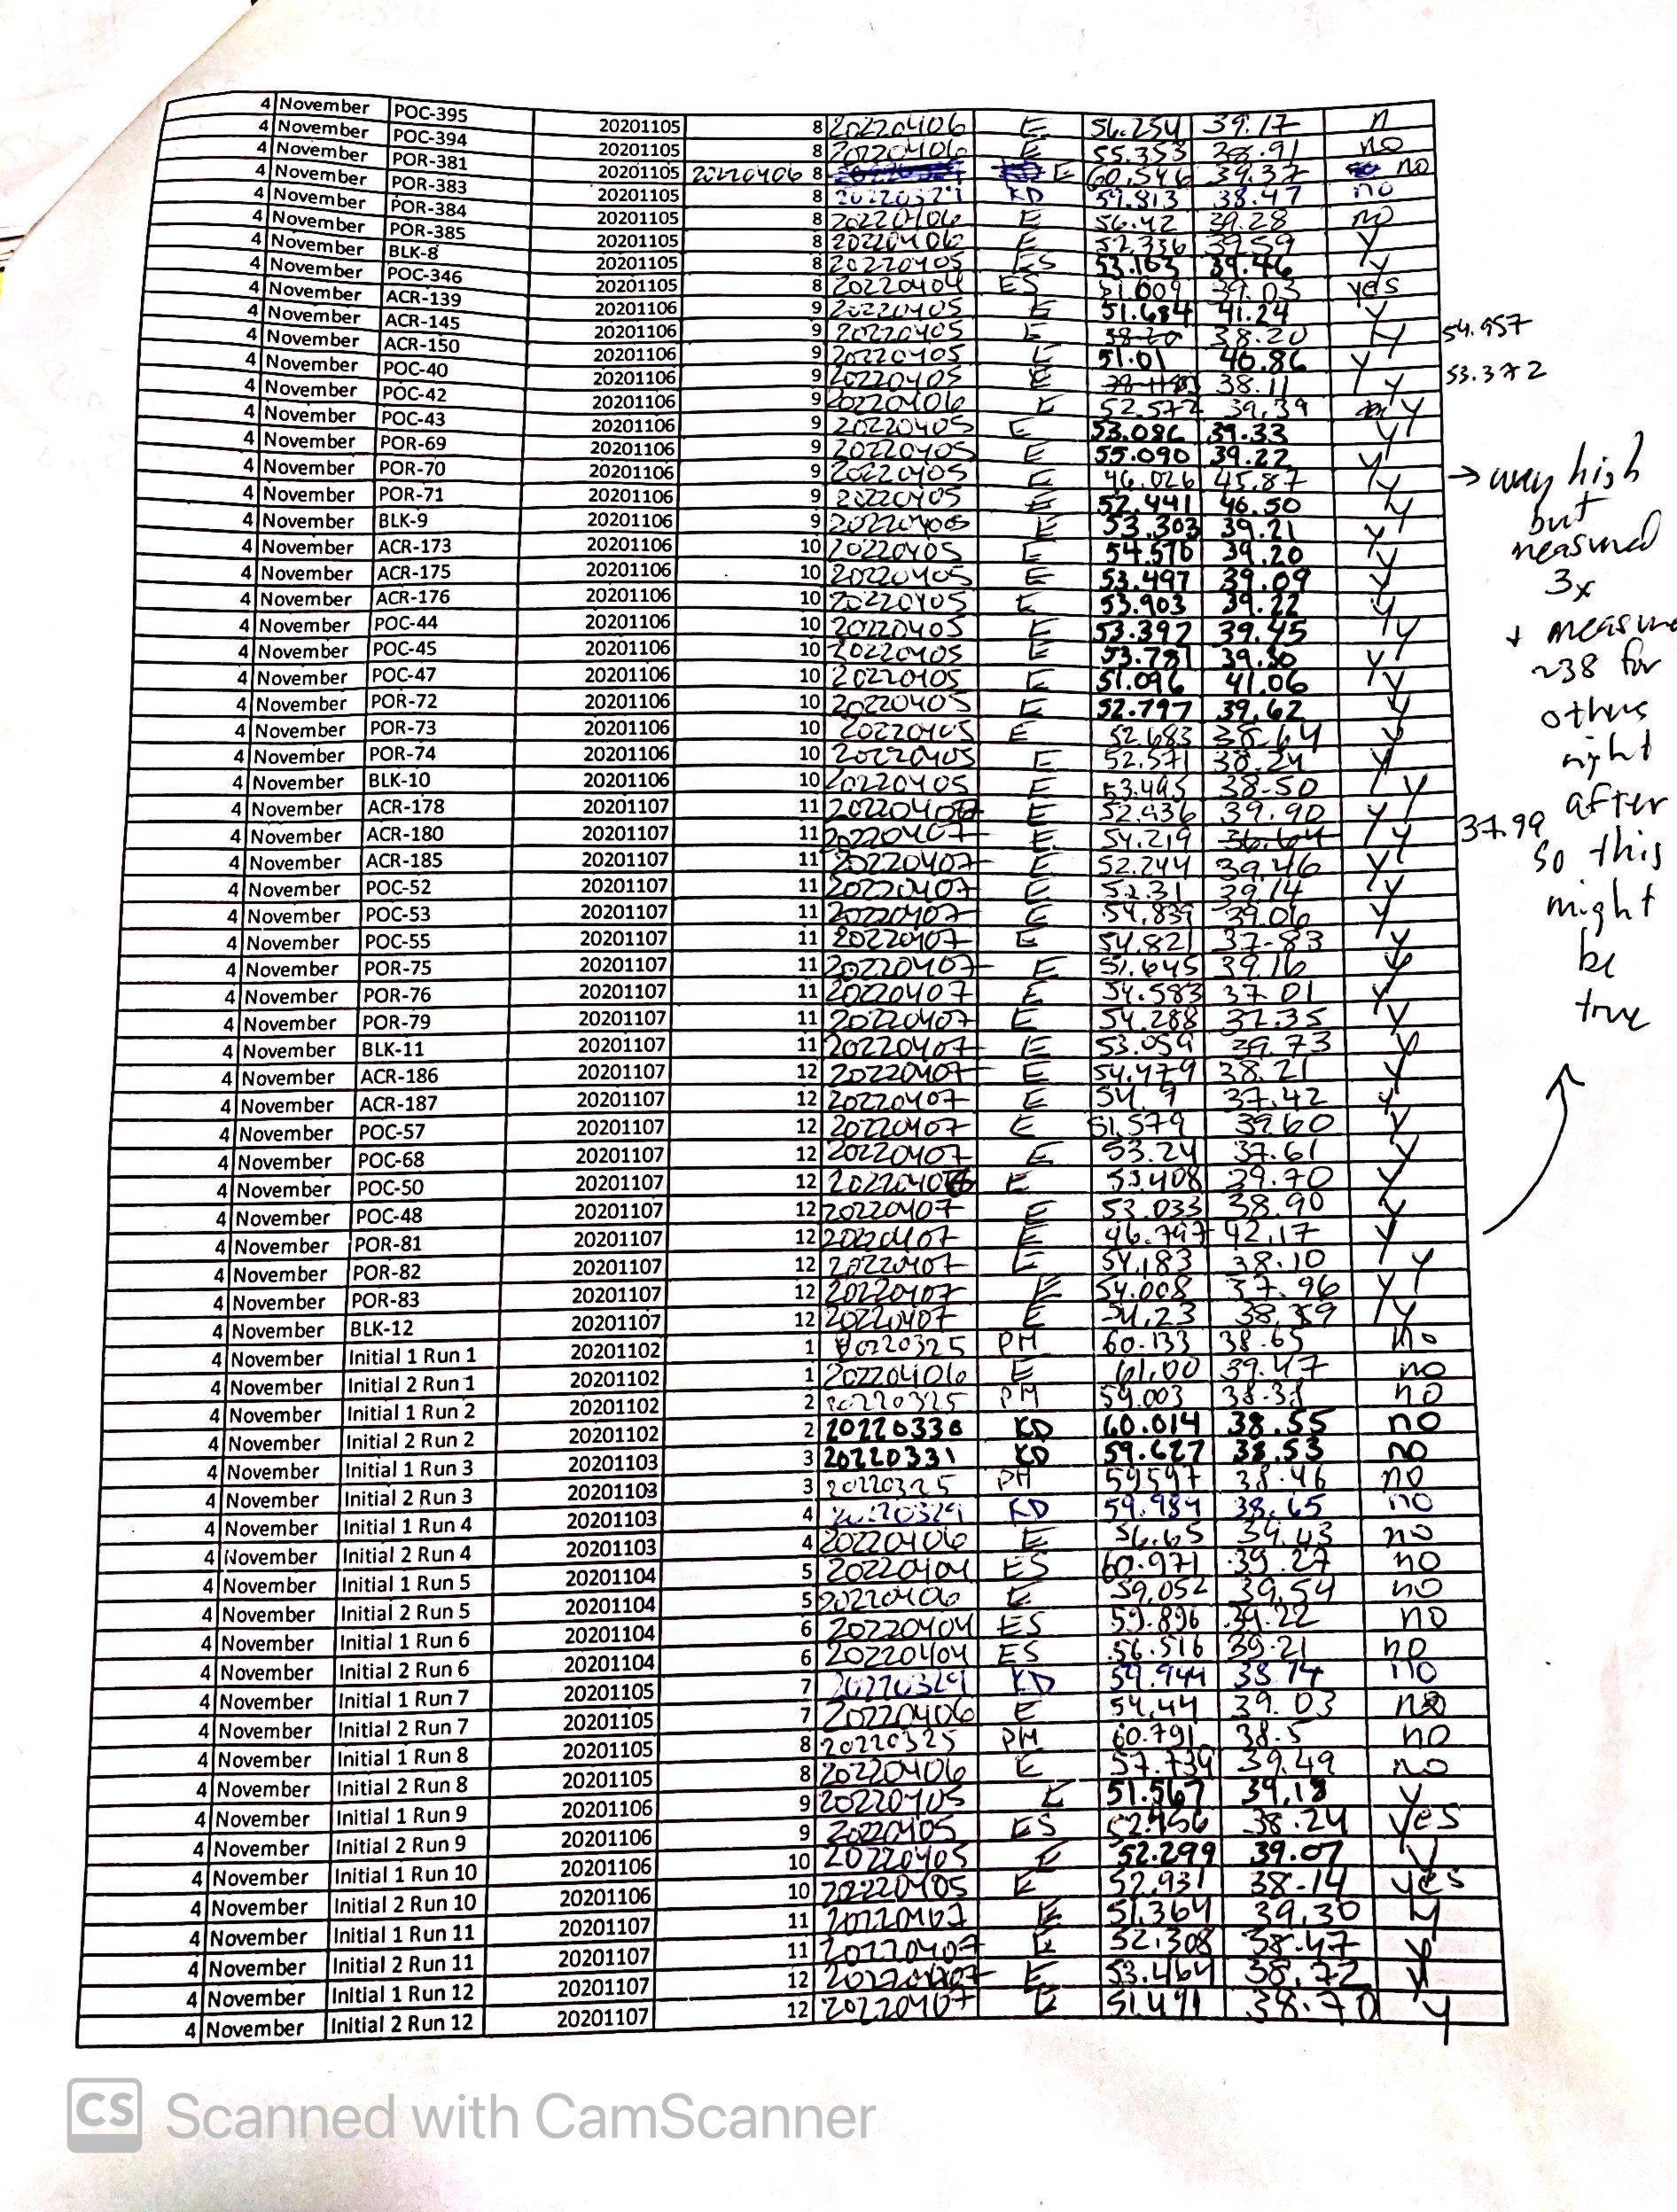 4 November POC-395 20201105 8 20220406 E 56.254 39.17 n
4 November POC-394 20201105 8 20220406 E 55.353 38.91 no
4 November POR-381 20201105 20220406 8 E 60.546 39.37 no
4 November POR-383 20201105 8 20220329 KD 59.813 38.47 no
4 November POR-384 20201105 8 20220406 E 56.42 39.28 no
4 November POR-385 20201105 8 20220406 E 52.336 39.59 y
4 November BLK-8 20201105 8 20220405 ES 53.163 39.46 y
4 November POC-346 20201105 8 20220404 ES 51.609 39.03 yes
4 November ACR-139 20201106 9 20220405 E 51.684 41.24 y
4 November ACR-145 20201106 9 20220405 E 38.20 38.20 y 54.957
4 November ACR-150 20201106 9 20220405 E 51.01 40.86 y
4 November POC-40 20201106 9 20220405 E 38.11 y 53.372
4 November POC-42 20201106 9 20220406 E 52.572 39.39 y
4 November POC-43 20201106 9 20220405 E 53.086 39.33 y
4 November POR-69 20201106 9 20220405 E 55.090 39.22 y
4 November POR-70 20201106 9 20220405 E 46.026 45.87 y → way high
4 November POR-71 20201106 9 20220405 E 52.441 40.50 y but
4 November BLK-9 20201106 9 20220405 E 53.303 39.21 y measured
4 November ACR-173 20201106 10 20220405 E 54.576 39.20 y
4 November ACR-175 20201106 10 20220405 E 53.497 39.09 y 3x
4 November ACR-176 20201106 10 20220405 E 53.903 39.22 y
4 November POC-44 20201106 10 20220405 E 53.397 39.45 y + measure
4 November POC-45 20201106 10 20220405 E 53.781 39.30 y ~38 for
4 November POC-47 20201106 10 20220405 E 51.096 41.06 y
4 November POR-72 20201106 10 20220405 E 52.797 39.62 y others
4 November POR-73 20201106 10 20220405 E 52.683 38.64 y right
4 November POR-74 20201106 10 20220405 E 52.571 38.24 y
4 November BLK-10 20201106 10 20220405 E 53.495 38.50 y
4 November ACR-178 20201107 11 20220407 E 52.936 39.90 y after
4 November ACR-180 20201107 11 20220407 E 54.219 36.64 y 37.99
4 November ACR-185 20201107 11 20220407 E 52.244 39.46 y so this
4 November POC-52 20201107 11 20220407 E 52.31 39.14 y
4 November POC-53 20201107 11 20220407 E 54.839 39.06 y might
4 November POC-55 20201107 11 20220407 E 54.821 37.83 y
4 November POR-75 20201107 11 20220407 E 51.645 39.16 y be
4 November POR-76 20201107 11 20220407 E 54.583 37.01 y true
4 November POR-79 20201107 11 20220407 E 54.288 37.35 y
4 November BLK-11 20201107 11 20220407 E 53.059 39.73 y
4 November ACR-186 20201107 12 20220407 E 54.479 38.21 y
4 November ACR-187 20201107 12 20220407 E 54.9 37.42 y
4 November POC-57 20201107 12 20220407 E 51.579 39.60 y
4 November POC-68 20201107 12 20220407 E 53.24 37.61 y
4 November POC-50 20201107 12 E 53.408 39.70 y
4 November POC-48 20201107 12 20220407 E 53.033 38.90 y
4 November POR-81 20201107 12 20220407 E 46.797 42.17 y
4 November POR-82 20201107 12 20220407 E 54.183 38.10 y
4 November POR-83 20201107 12 20220407 E 54.008 37.96 y
4 November BLK-12 20201107 12 20220407 E 54.23 38.59 y
4 November Initial 1 Run 1 20201102 1 20220325 PM 60.133 38.65 no
4 November Initial 2 Run 1 20201102 1 20220406 E 61.00 39.47 no
4 November Initial 1 Run 2 20201102 2 20220325 PM 59.003 38.38 no
4 November Initial 2 Run 2 20201102 2 20220330 KD 60.014 38.55 no
4 November Initial 1 Run 3 20201103 3 20220331 KD 59.627 38.53 no
4 November Initial 2 Run 3 20201103 3 20220325 PM 59597 38.46 no
4 November Initial 1 Run 4 20201103 4 20220329 KD 59.989 38.65 no
4 November Initial 2 Run 4 20201103 4 20220406 E 56.65 39.43 no
4 November Initial 1 Run 5 20201104 5 20220404 ES 60.971 39.27 no
4 November Initial 2 Run 5 20201104 5 20220406 E 59.052 39.54 no
4 November Initial 1 Run 6 20201104 6 20220404 ES 59.896 39.22 no
4 November Initial 2 Run 6 20201104 6 20220404 ES 56.516 39.21 no
4 November Initial 1 Run 7 20201105 7 20220329 KD 59.944 38.74 no
4 November Initial 2 Run 7 20201105 7 20220406 E 54.44 39.03 no
4 November Initial 1 Run 8 20201105 8 20220325 PM 60.791 38.5 no
4 November Initial 2 Run 8 20201105 8 20220406 E 57.739 39.49 no
4 November Initial 1 Run 9 20201106 9 20220405 E 51.567 39.18 y
4 November Initial 2 Run 9 20201106 9 20220405 ES 52.956 38.24 yes
4 November Initial 1 Run 10 20201106 10 20220405 E 52.299 39.07 y
4 November Initial 2 Run 10 20201106 10 20220405 E 52.931 38.14 yes
4 November Initial 1 Run 11 20201107 11 20220407 E 51.364 39.30 y
4 November Initial 2 Run 11 20201107 11 20220407 E 52.308 38.47 y
4 November Initial 1 Run 12 20201107 12 20220407 E 53.464 38.72 y
4 November Initial 2 Run 12 20201107 12 20220407 E 51.471 38.70 y
CS Scanned with CamScanner